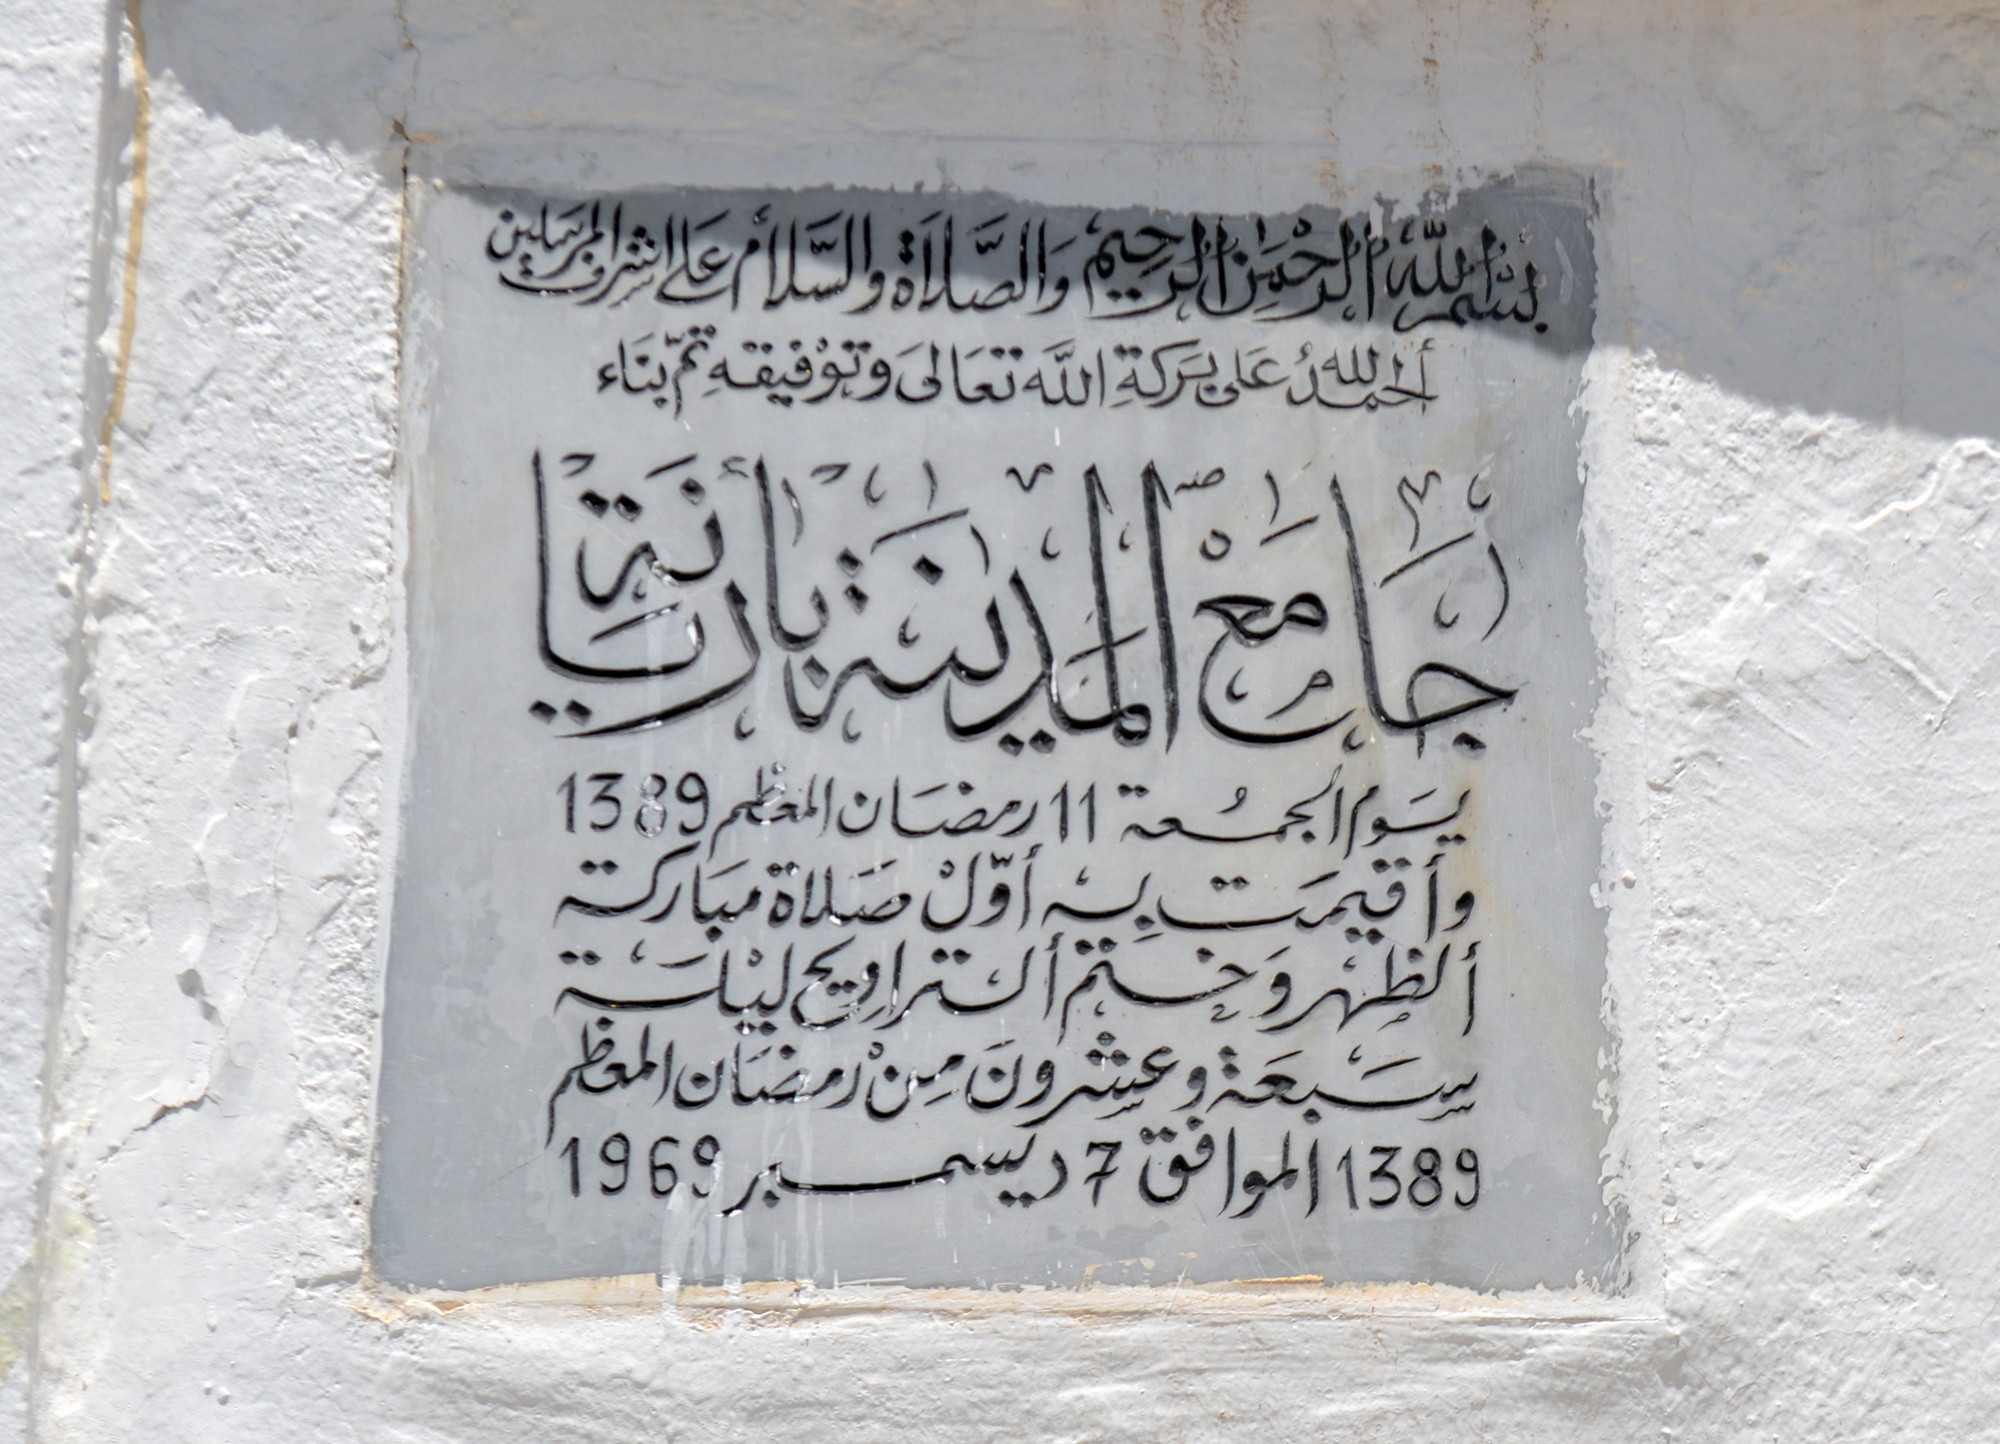 بسم الله الرحمن الرحيم والصلاة والسلام على اشرف المرسلين
ألحمد لله على بركة الله تعالى وتوفيقه تم بناء
جامع المدينة بأريانة
يوم الجمعة 11 رمضان المعظم 1389
وأقيمت به أول صلاة مباركة
ألظهر وختم ألتراويح ليلة
سبعة وعشرون من رمضان المعظم
1389 الموافق 7 ديسمبر 1969